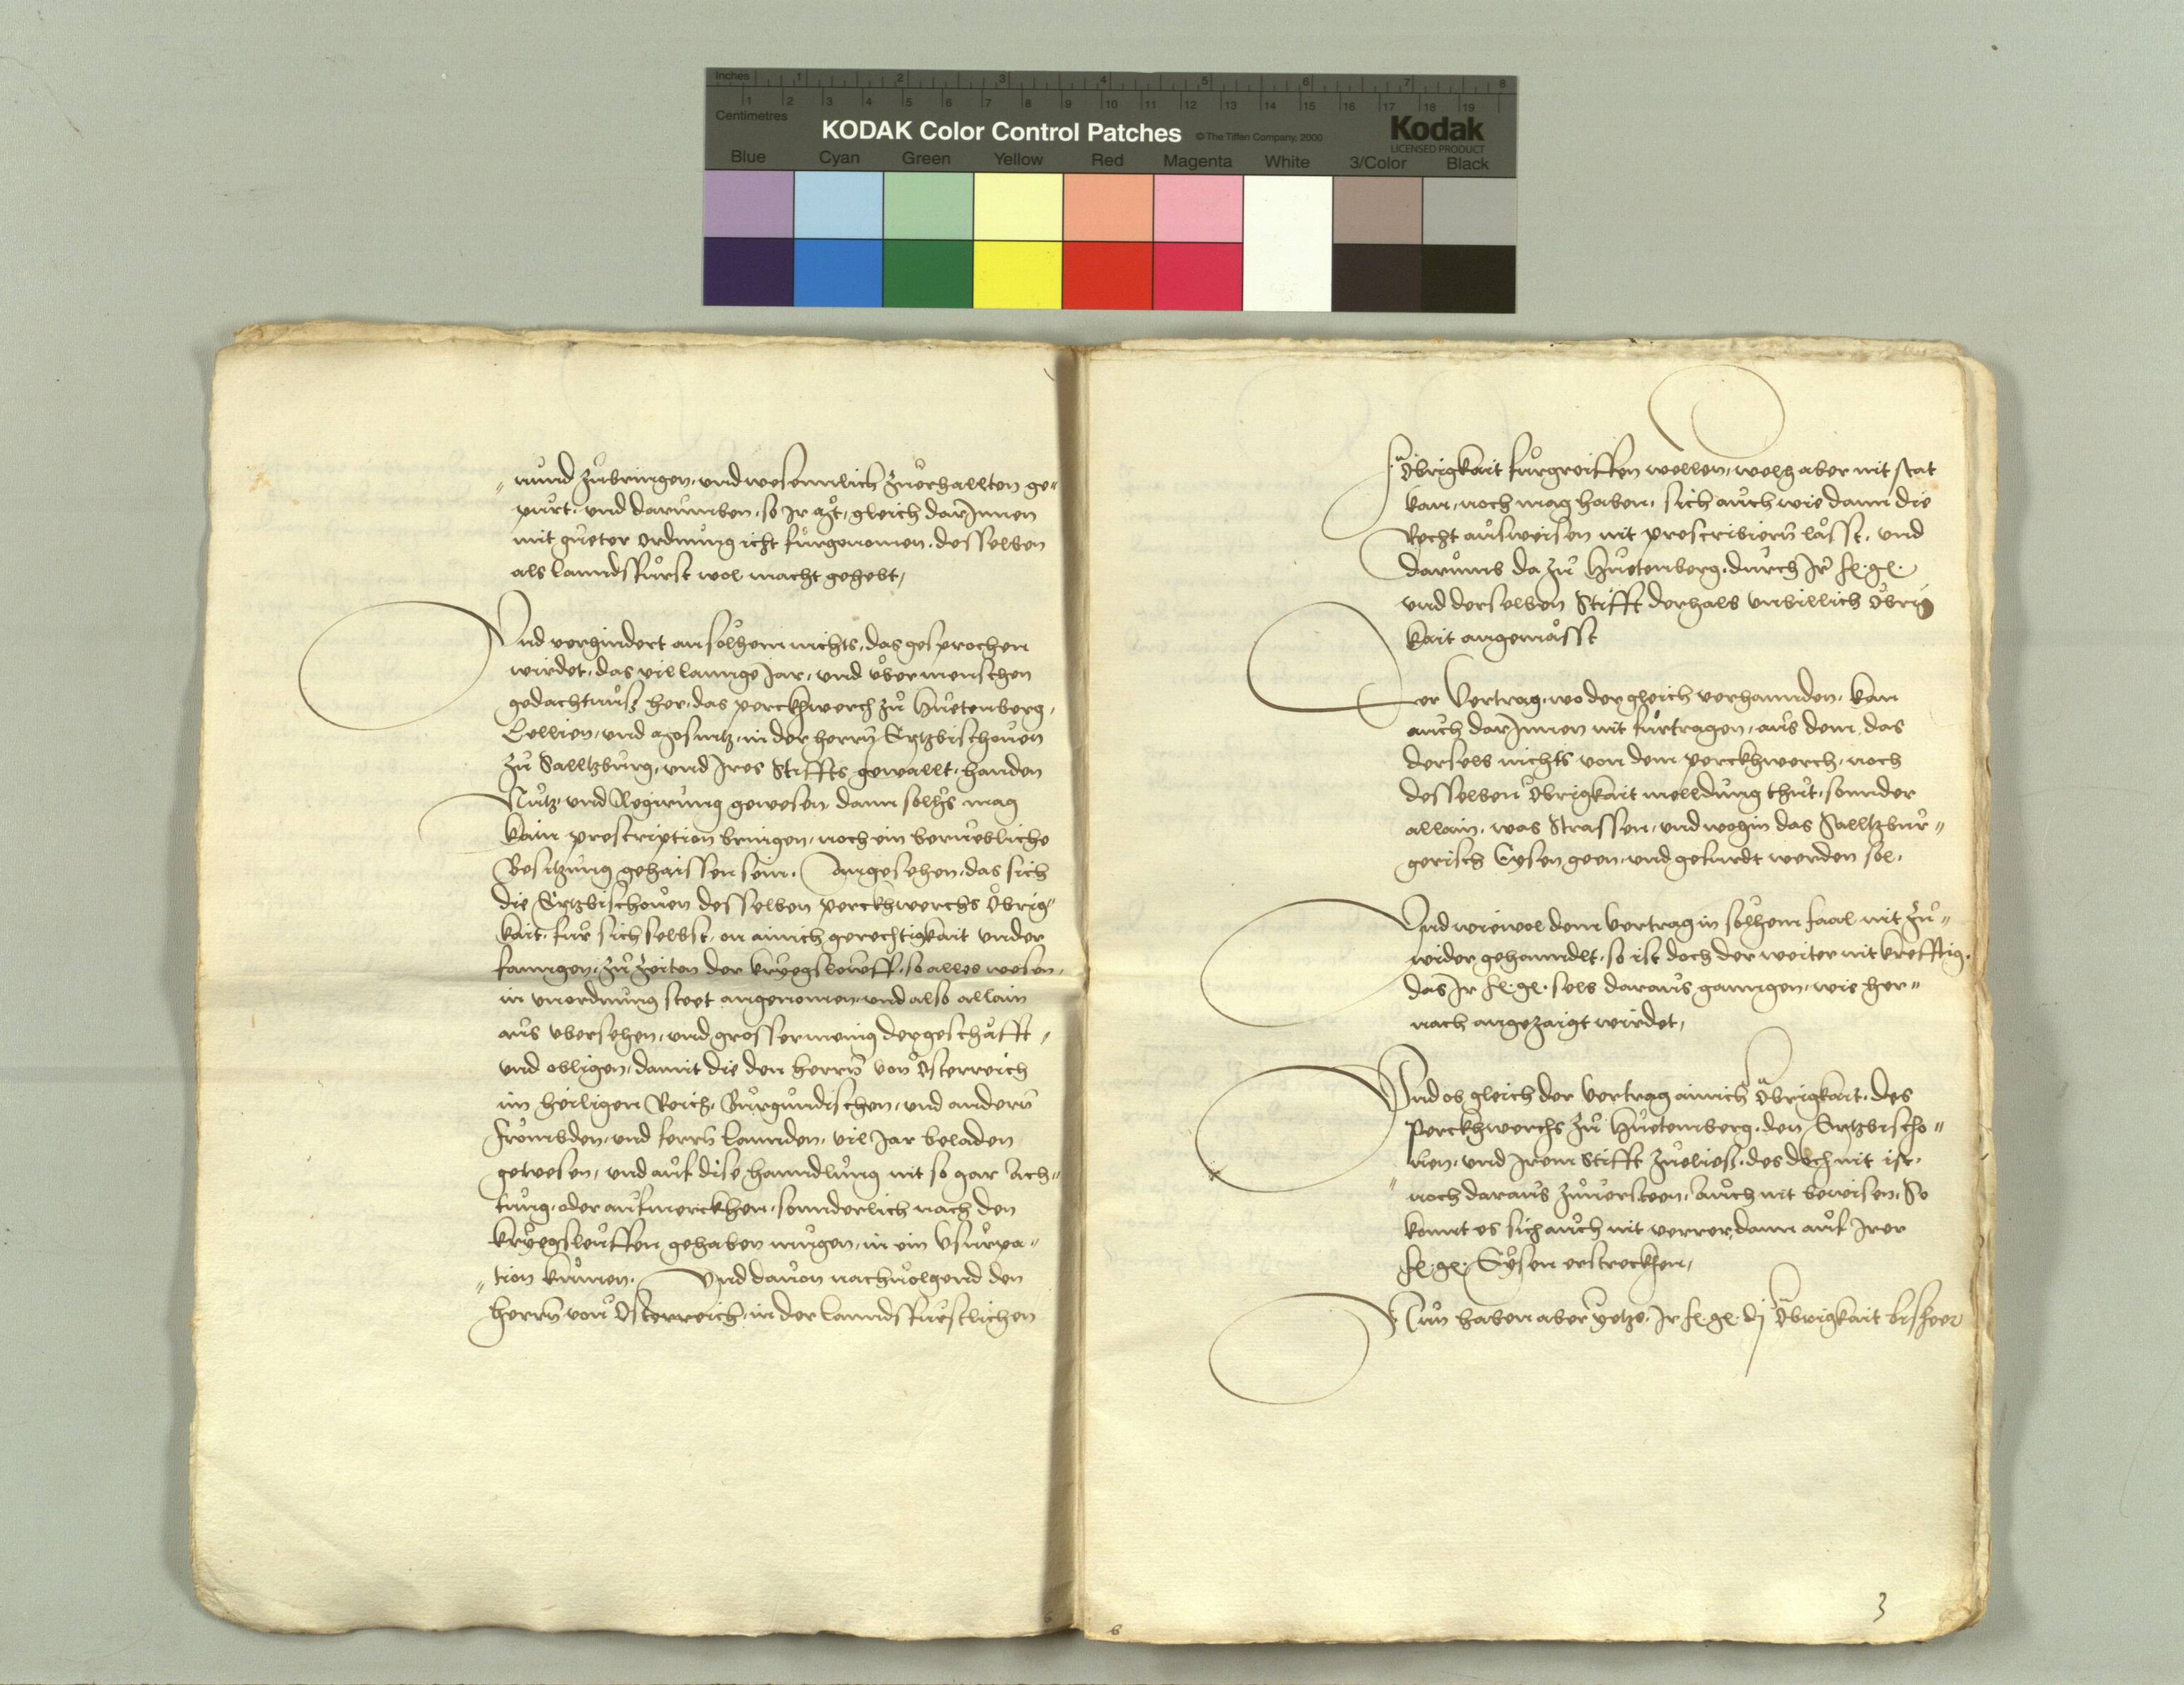 Inches 1 2 3 4 5 6 7 8
1 2 3 4 5 6 7 8 9 10 11 12 13 14 15 16 17 18 19
Centimetres
KODAK Color Control Patches © The Tiffen Company, 2000 Kodak
LICENSED PRODUCT
Blue Cyan Green Yellow Red Magenta White 3/Color Black
nund zůbringen, und wesennlich zuerhallten ge=
pürt, und darumben, so Ir gleich darInnen
mit gueter ordnung icht fürgenomen, desselben
als lanndsfürst wol macht gehebt,
Und verhindert an solhem nichts, das gesprochen
wirdet, das vil lannge Jar, und über menschen
gedachtnuß her, das perckhwerch zů Hüetenberg,
und in der herrn Ertzbischouen
zů Salltzburg, und Ires Stiffts gewallt, handen
Nutz, und Regirung gewesen, dann solhs mag
kain prescription bringen, noch ein beruebliche
Besitzung gehaissen sein. Angesehen, das sich
die Ertzbischouen desselben perckhwerchs öbrig=
kait, für sich selbst, on ainich gerechtigkait under
fanngen, zů Zeiten der kryegsleüff, so alles wesen,
in unordnung steet angenomen, und also allain
aus übersehen, und grosser menig der geschäfft,
und obligen, damit die den herrn von Österreich
im heiligen Reich, Burgundischen, und andern
frömbden, und ferrn lannden, vil Jar beladen
gewesen, und auf dise hanndlung nit so gar ach=
tung, oder aufmerckhen, sonnderlich nach den
kryegsleüffen gehaben mügen, in ein Usurpa=
tion kumen. Und dauon nachuolgend den
herrn von Österreich, in der lanndsfürstlichen
Öbrigkait fürgreiffen wellen, welhs aber nit stat
kan, noch mag haben, sich auch wie dann die
Recht ausweisen nit prescribiern lässt, und
darumb da zů Hüetenberg, durch Ir fr. gn.
und derselben Stifft derhalb unbillich öbrig
kait angemässt
Der Vertrag, wo der gleich verhannden, kan
auch darInnen nit fürtragen, aus dem, das
derselb nichts von dem perckhwerch, noch
desselben Öbrigkait melldung thut, sonnder
allain, was Strassen, und wohin das Salltzbur=
gerisch Eysen geen, und gefürdt werden sol.
Und wiewol dem Vertrag in solhem faal nit zů=
wider gehanndlt, so ist doch der weiter nit krefftig,
das Ir fr. gn. selb daraus ganngen, wie her=
nach angezaigt wirdet,
Und ob gleich der Vertrag ainich Öbrigkait, des
Perckhwerchs zů Hüetemberg, den Ertzbischo=
uen, und Irem Stifft zueließ, des doch nit ist,
noch daraus zuuersteen, auch nit beweisen, So
kunt es sich auch nit verrer, dann auf Irer
fr. gn. Eysen erstreckhen,
Nun haben aber yetzo Ir fr. gn. di Öbrigkait bisheer
3
6